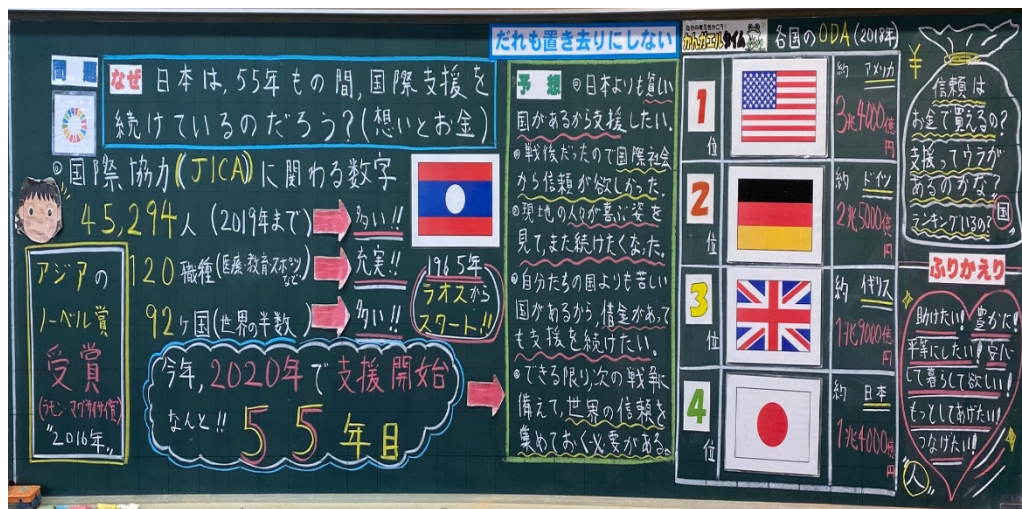 問題
なぜ 日本は,55年もの間,国際支援を
続けているのだろう?(想いとお金)
◎国際協力(JICA)に関わる数字
45,294人(2019年まで)
多い!!
120職種(医療・教育・スポーツなど)
充実!!
92ヶ国(世界の半数)
多い!!
1965年
ラオスから
スタート!!
アジアの
ノーベル賞
受賞
(ラモン・マグサイサイ賞)
"2016年"
今年,2020年で支援開始
なんと!! 55年目
だれも置き去りにしない
予想 ◎日本よりも貧しい
国があるから支援したい。
◎戦後だったので国際社会
から信頼が欲しかった。
◎現地の人々が喜ぶ姿を
見て,また続けたくなった。
◎自分たちの国よりも苦しい
国があるから,借金があって
も支援を続けたい。
◎できる限り,次の戦争に
備えて,世界の信頼を
集めておく必要がある。
かんガエルタイム
各国のODA(2018年)
1位
約 アメリカ
3兆4000億円
2位
約 ドイツ
2兆5000億円
3位
約 イギリス
1兆9000億円
4位
約 日本
1兆4000億円
¥
信頼は
お金で買えるの?
支援ってウラが
あるのかな?
国
ランキングいるの?
ふりかえり
助けたい! 豊かだ!
平等にしたい!
して暮らして欲しい!
もっとしてあげたい!
つなげたい!
人